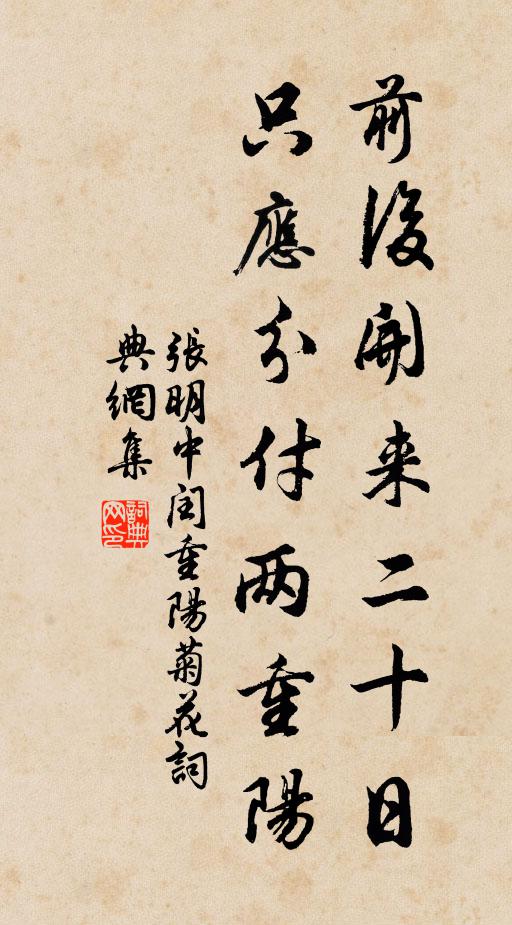 前後開来二十日
只應分付两重陽
張明中閏重陽菊花詞
典網集
詞典
网印